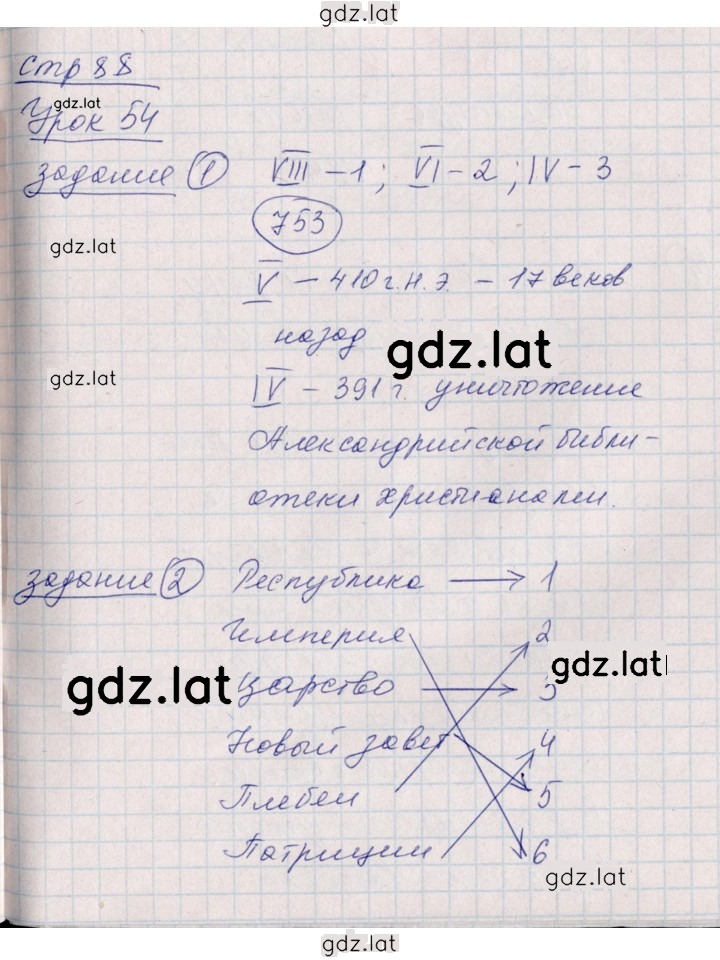 gdz.lat
стр 88
gdz.lat
Урок 54
задание 1 VIII – 1; VI – 2; IV – 3
753
gdz.lat
V – 410 г. н. э. – 17 веков
назад
gdz.lat
gdz.lat
IV – 391 г. уничтожение
Александрийской библи-
отеки христианами.
задание 2 Республика → 1
Империя 2
gdz.lat
gdz.lat
Царство → 3
Новый завет 4
Плебеи 5
Патриции 6
gdz.lat
gdz.lat